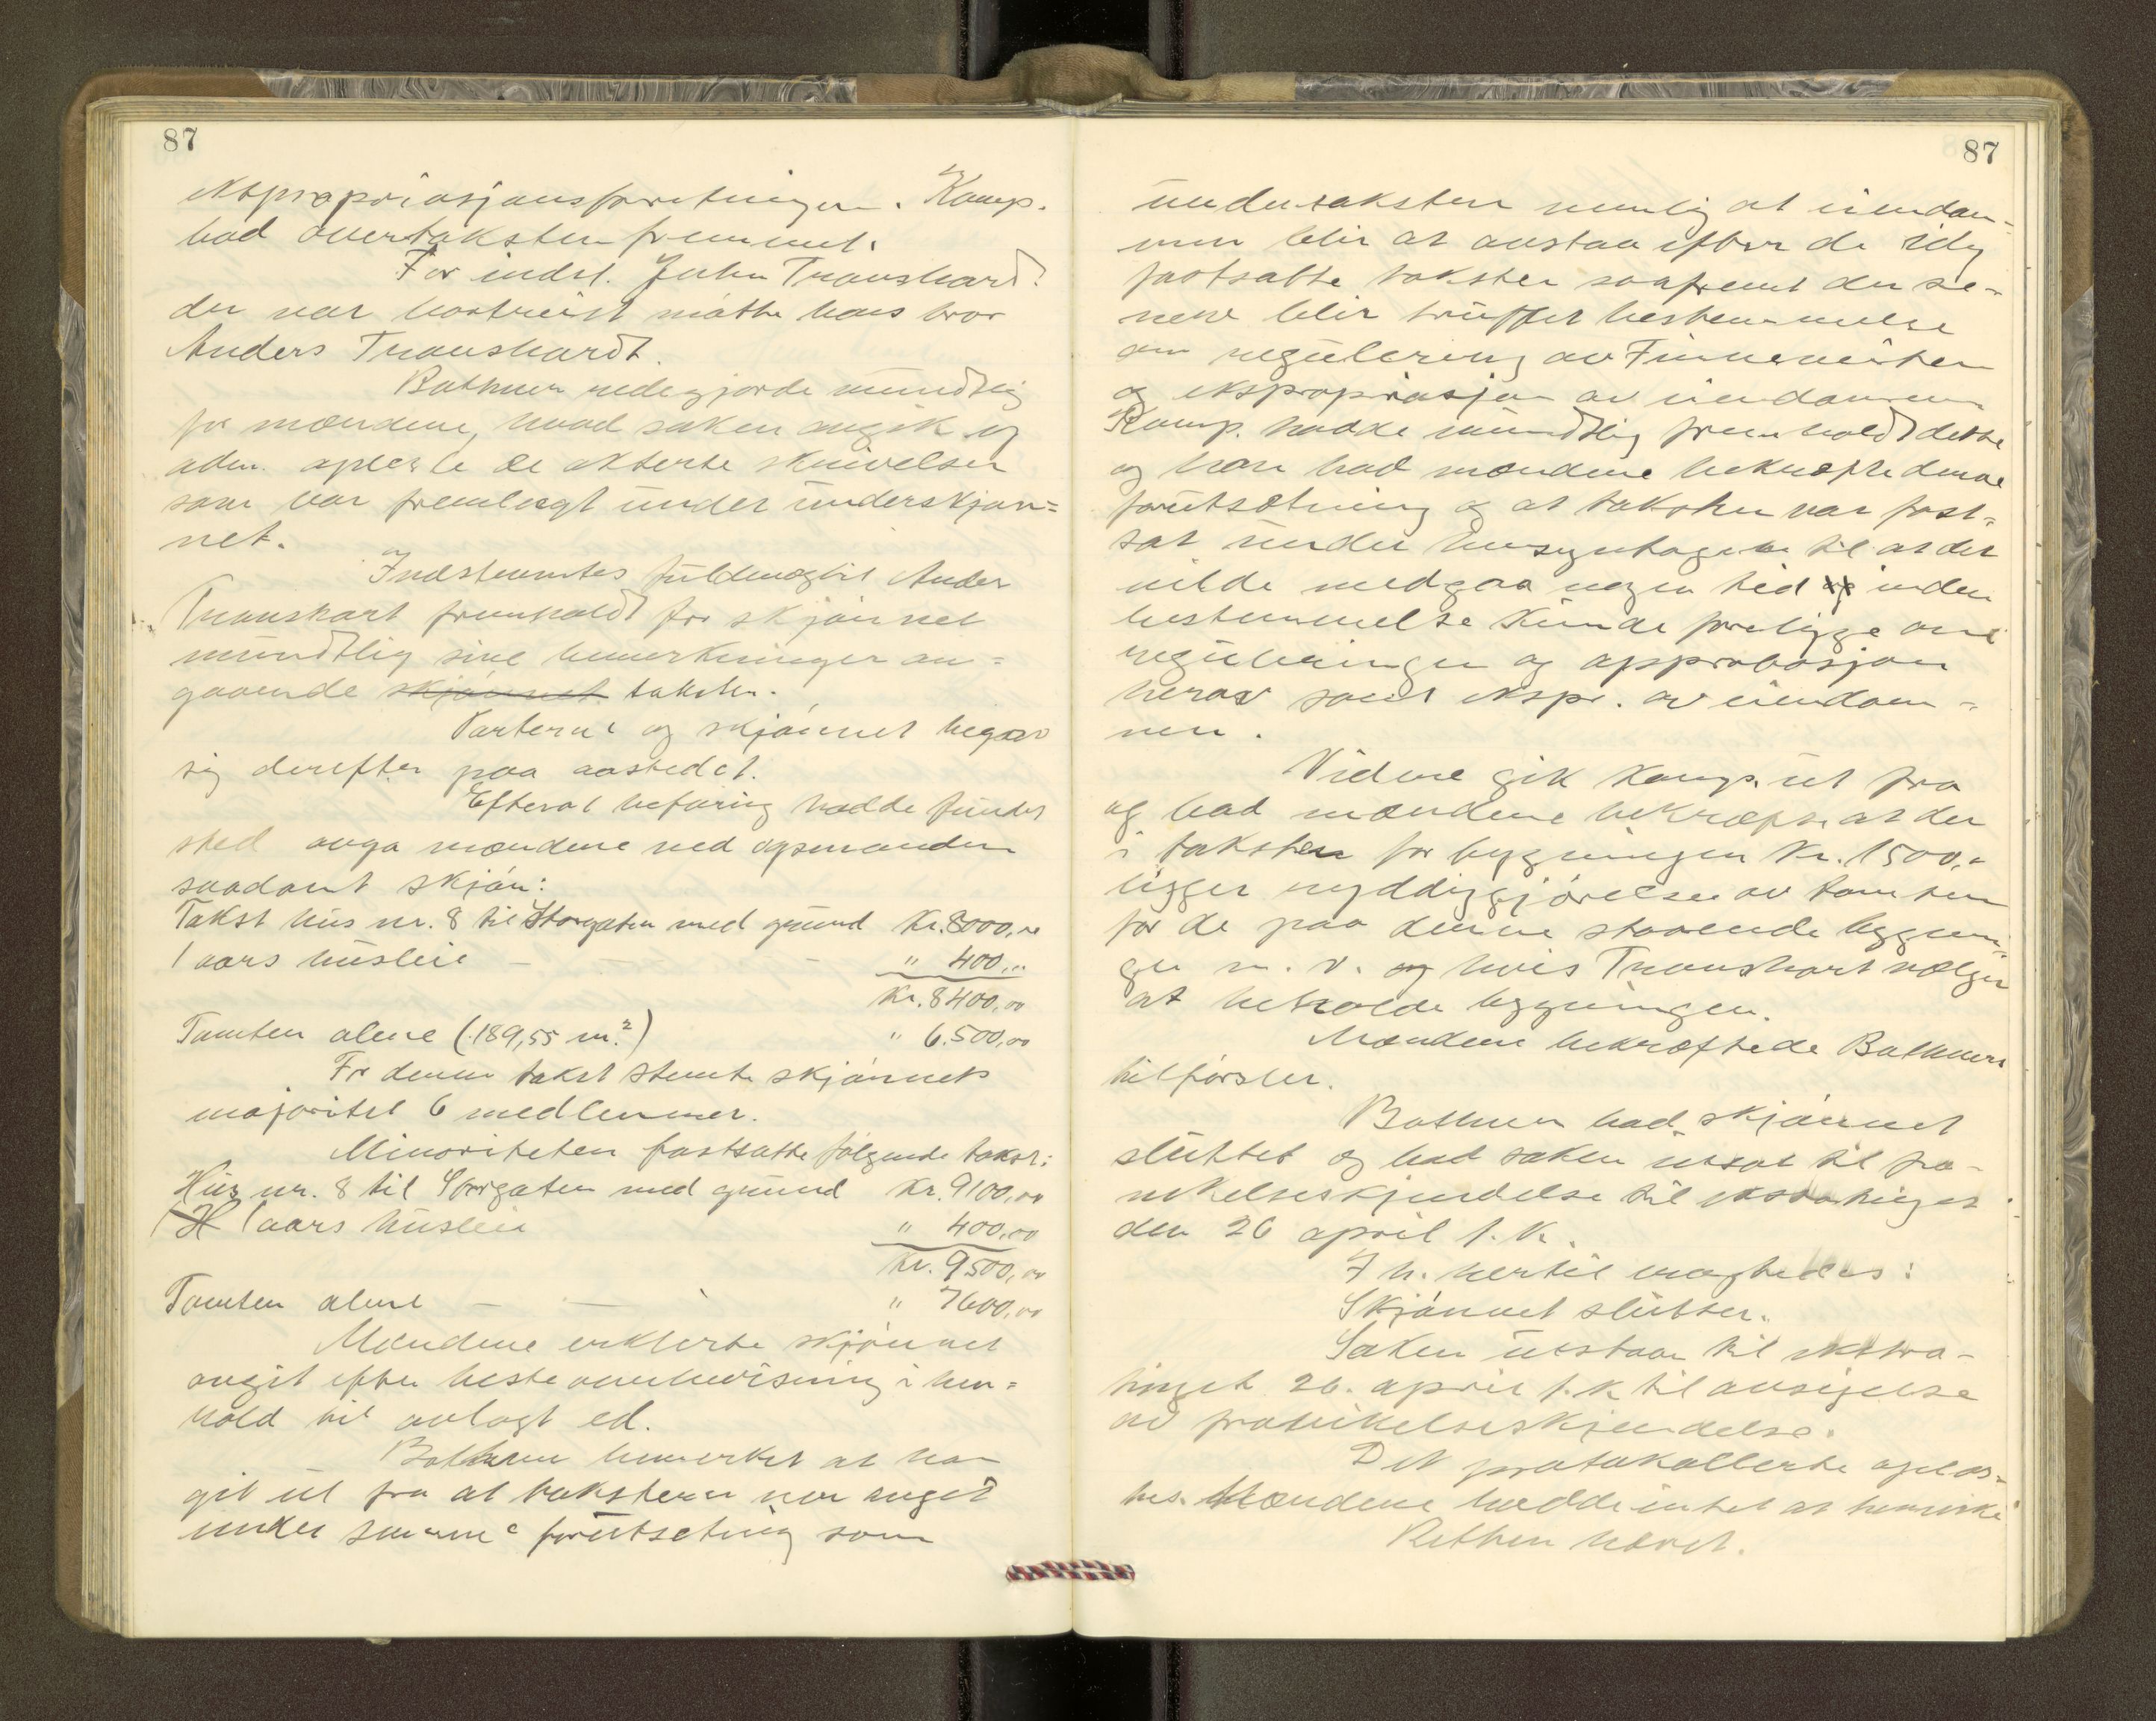 87
ekspropriasjonsforretningen. Komp.
bad overtaksten fremmet.
For indst. John Transhardt
der var bortreist møtte hans bror
Anders Transhardt.
Bathner redegjorde mundtlig
for mændene, hvad saken angik og
adm. oplæste de akterte skrivelser
som var fremlagt under underskjøn=
net.
Indstevntes fuldmægtil Ander
Transhart fremholdt for skjønnet
mundtlig sine bemerkninger an=
gaaende skjønnet taksten.
Parterne og skjønnet begav
sig derefter paa aastedet.
Efterat befaring hadde fundet
sted avga mændene med opmanden
saadant skjøn:
Takst hus nr. 8 til Storgaten med grund Kr. 8000,00
1 aars husleie - - - " 400,00
Kr. 8400,00
Tomten alene (189,55 m.²) " 6.500,00
For denne takst stemte skjønnets
majoritet 6 medlemmer.
Minoriteten fastsatte følgende takst:
Hus nr. 8 til Storgaten med grund Kr. 9100,00
H 1 aars husleie " 400,00
Kr. 9500,00
Tomten alene - - " 7600,00
Mændene erklærte skjønnet
avgit efter beste overbevisning i hen=
hold til avlagt ed.
Bathner bemerket at han
gik ut fra at taksterne var avgit
under samme forutsetning som
87
undertaksten nemlig at eiendom-
men blir at avstaa efter de idag
fastsatte takster saafremt der se-
nere blir truffet bestemmelse
om regulering av Finneveiten
og ekspropriasjon av eiendommen
Komp. hadde mundtlig fremholdt dette
og han bad mændene bekræfte denne
forutsætning og at taksten var fast-
sat under hensyntagen til at det
vilde medgaa nogen tid og inden
bestemmelse kunde foreligge om
reguleringen og approbasjon
herav samt ekspr. av eiendom-
men.
Videre gik komp. ut fra
og bad mændene bekræfte at der
i taksten for bygningen kr. 1500,-
ligger ryddiggjørelse av tomten
for de paa denne staaende bygnin-
ger m. v. og hvis Transhart vælger
at beholde bygningen.
Mændene bekræftede Bathners
tilførsler.
Bathner bad skjønnet
sluttet og bad saken utsat til fra-
vikelseskjendelse til ekstratinget
den 26 april f. k.
I h. hertil vagtedes:
Skjønnet sluttes.
Saken utstaar til ekstra-
tinget 26. april f. k. til avsigelse
av fravikelseskjendelse.
Det protokollerte oplæs-
tes. Mændene hadde intet at bemerke
Retten hævet.